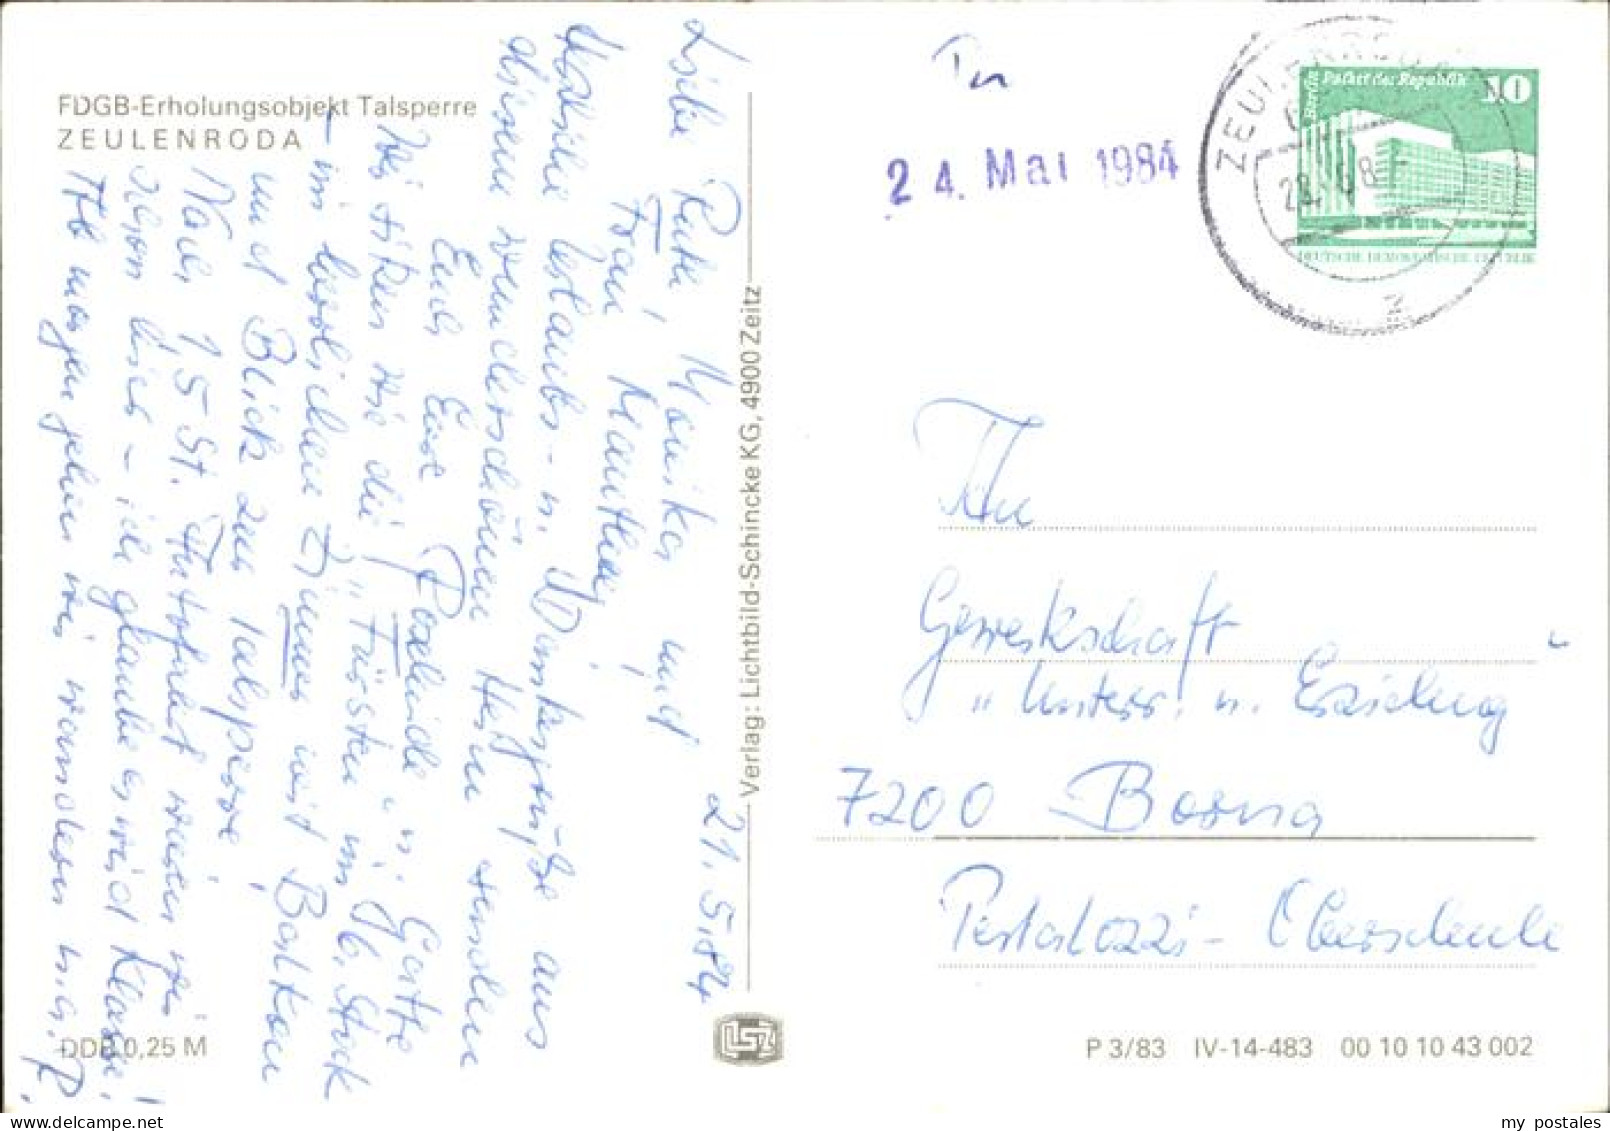 FDGB-Erholungsobjekt Talsperre
ZEULENRODA
21.5.84
Liebe Rute, Monika und
Frau Mautheu
Herzliche Urlaubs- u. Wintergrüße aus
diesem wunderschönen Heim senden
Euch Eure Roselinde u. Gatte
Wir sitzen wie die "Fürsten" im 6. Stock
- im herrlichen Zimmer mit Balkon
und Blick zur Talsperre!
Nach 15 St. Autofahrt waren wir
schon hier - ich glaube es wird Klasse!
Ab morgen gehen wir wandern u.a.
DDR 0,25 M
Verlag: Lichtbild-Schincke KG, 4900 Zeitz
24. Mai 1984
ZEULENRODA
Berlin Palast der Republik 10
DEUTSCHE DEMOKRATISCHE REPUBLIK
An
Gewerkschaft
"Unterr. u. Erziehung"
7200 Borna
Pestalozzi-Oberschule
P 3/83 IV-14-483 00 10 10 43 002
my postales